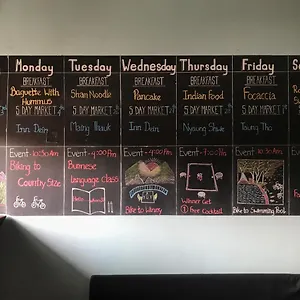 Monday
BREAKFAST
Baguette With
Hummus
5 DAY MARKET
Inn Dein
Event - 10:30 Am
Biking to
Country Side
Tuesday
BREAKFAST
Shan Noodle
5 DAY MARKET
Maing Thauk
Event - 4:00 Pm
Burmese
Language Class
Wednesday
BREAKFAST
Pancake
5 DAY MARKET
Inn Dein
Event - 4:00 Pm
Bike to Winery
Thursday
BREAKFAST
Indian Food
5 DAY MARKET
Nyaung Shwe
Event - 4:00 Pm
Winner Get
1 Free Cocktail
Friday
BREAKFAST
Focaccia
5 DAY MARKET
Taung Tho
Event - 12:30 Pm
Bike to Swimming Pool